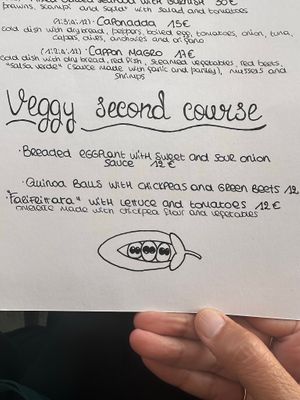 30€
prawns, scampi and squid" with salad and tomatoes
CAPONADDA 15€
cold dish with dry bread, peppers, boiled egg, tomatoes, onion, tuna,
capers, olives, anchovies and origano
CAPPON MAGRO 17€
cold dish with dry bread, red fish, steamed vegetables, red beets,
"salsa verde" (sauce made with garlic and parsley), mussels and
shrimps
Veggy second course
· BREADED EGGPLANT WITH SWEET AND SOUR ONION
SAUCE 12€
· QUINOA BALLS WITH CHICKPEAS AND GREEN BEETS 12
WITH LETTUCE AND TOMATOES 12€
omelette made with chickpea flour and vegetables